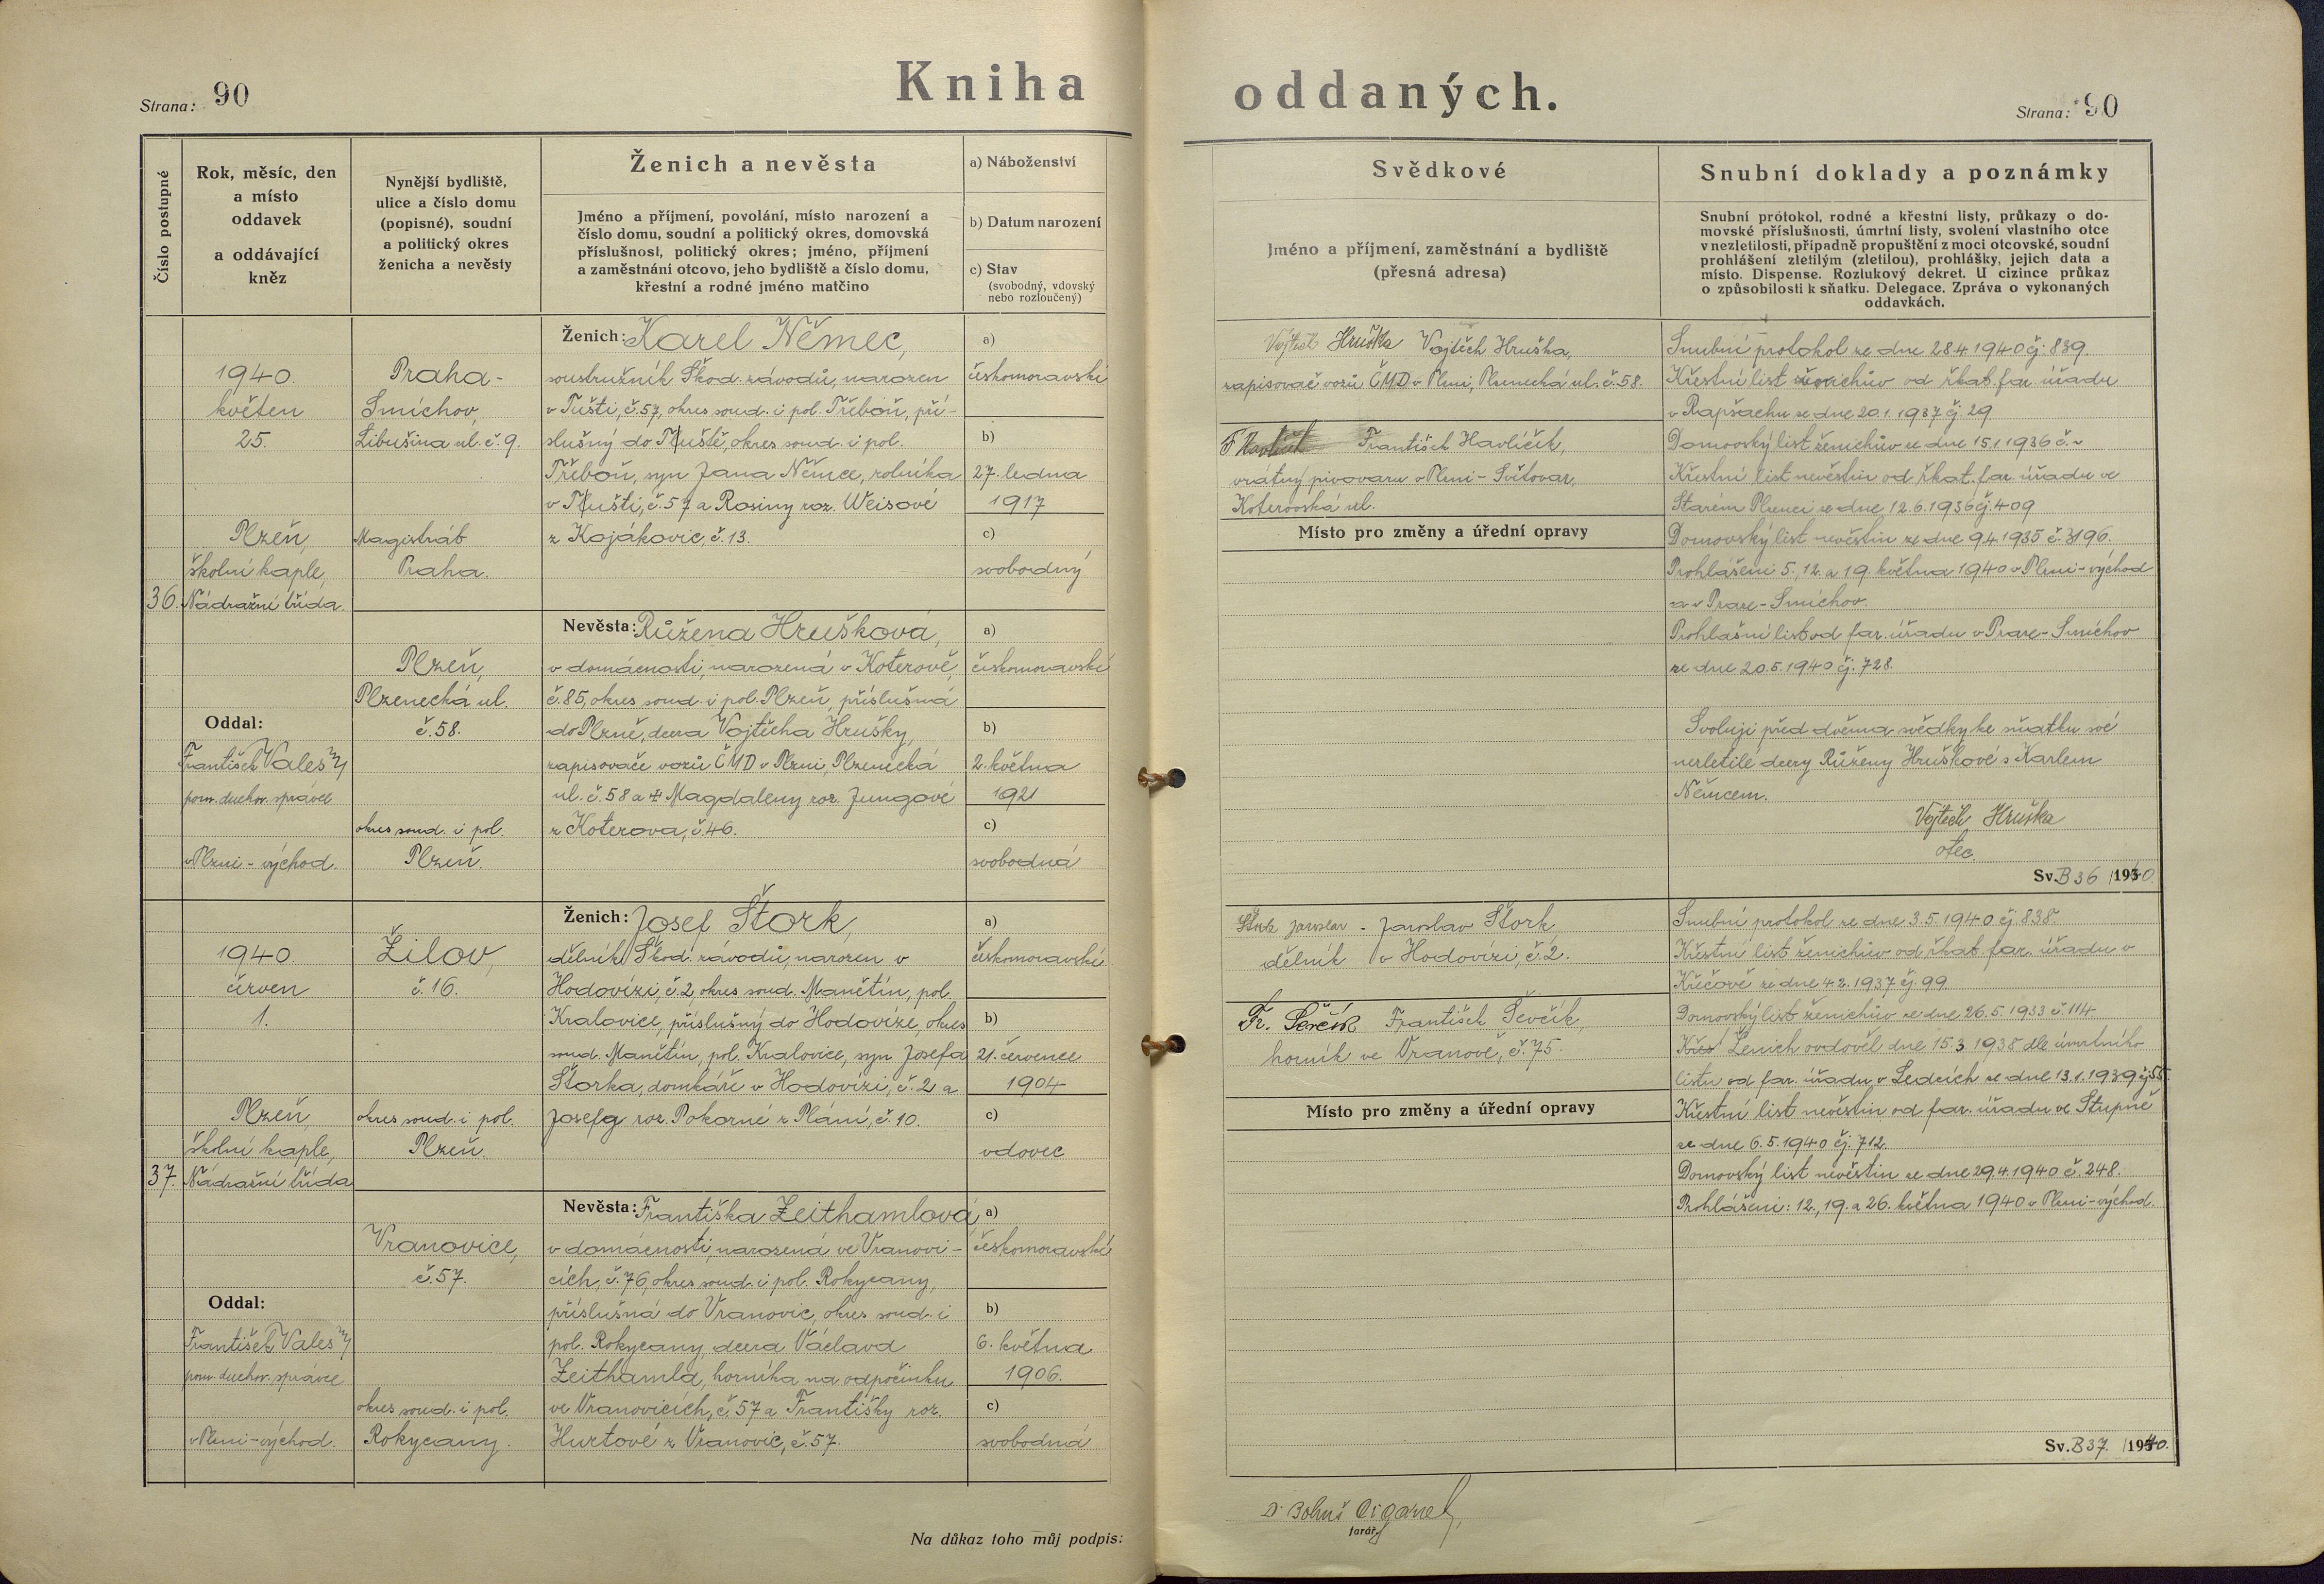 Kniha oddaných.
Strana: 90
Strana: 90
Číslo postupné
Rok, měsíc, den
a místo
oddavek
a oddávající
kněz
Nynější bydliště,
ulice a číslo domu
(popisné), soudní
a politický okres
ženicha a nevěsty
Ženich a nevěsta
Jméno a příjmení, povolání, místo narození a
číslo domu, soudní a politický okres, domovská
příslušnost, politický okres; jméno, příjmení
a zaměstnání otcovo, jeho bydliště a číslo domu,
křestní a rodné jméno matčino
a) Náboženství
b) Datum narození
c) Stav
(svobodný, vdovský
nebo rozloučený)
Svědkové
Jméno a příjmení, zaměstnání a bydliště
(přesná adresa)
Snubní doklady a poznámky
Snubní prótokol, rodné a křestní listy, průkazy o do-
movské příslušnosti, úmrtní listy, svolení vlastního otce
v nezletilosti, případně propuštění z moci otcovské, soudní
prohlášení zletilým (zletilou), prohlášky, jejich data a
místo. Dispense. Rozlukový dekret. U cizince průkaz
o způsobilosti k sňatku. Delegace. Zpráva o vykonaných
oddavkách.
36.
1940.
květen
25.
Plzeň,
školní kaple,
Nádražní třída.
Oddal:
František Vales
pom. duchov. správce
v Plzni - východ.
Praha -
Smíchov,
Libušina ul. č. 9.
Magistrát
Praha.
Plzeň,
Plzenecká ul.
č. 58.
okres soud. i pol.
Plzeň.
Ženich: Karel Němec,
soustružník Škod. závodů, narozen
v Tušti, č. 57, okres soud. i pol. Třeboň, pří-
slušný do Tuště, okres soud. i pol.
Třeboň, syn Jana Němce, rolníka
v Tušti, č. 57 a Rosiny roz. Weisové
z Kojákovic, č. 13.
Nevěsta: Růžena Hrušková,
v domácnosti, narozená v Koterově,
č. 85, okres soud. i pol. Plzeň, příslušná
do Plzně, dcera Vojtěcha Hrušky,
zapisovače vozů ČMD v Plzni, Plzenecká
ul. č. 58 a ‡ Magdaleny roz. Jungové
z Koterova, č. 46.
a)
českomoravské
b)
27. ledna
1917
c)
svobodný
a)
českomoravské
b)
2. května
1921
c)
svobodná
Vojtěch Hruška Vojtěch Hruška,
zapisovač vozů ČMD v Plzni, Plzenecká ul. č. 58.
F Havlíček František Havlíček,
vrátný pivovaru v Plzni - Světovar,
Koterovská ul.
Místo pro změny a úřední opravy
Snubní protokol ze dne 28.4.1940 čj. 839.
Křestní list ženichův od řkat. far. úřadu
v Rapšachu ze dne 20.1.1937 čj. 29
Domovský list ženichův ze dne 15.1.1936 č. ~
Křestní list nevěstin od řkat. far. úřadu ve
Starém Plzenci ze dne 12.6.1936 čj. 409
Domovský list nevěstin ze dne 9.4.1935 č. 3196.
Prohlášeni 5., 12. a 19. května 1940 v Plzni - východ
a v Praze - Smíchov.
Prohlašní list od far. úřadu v Praze - Smíchov
ze dne 20.5.1940 čj. 728.
Svoluji před dvěma svědky ke sňatku své
nezletilé dcery Růženy Hruškové s Karlem
Němcem.
Vojtěch Hruška
otec.
Sv. B 36 /1940.
37.
1940.
červen
1.
Plzeň
školní kaple,
Nádražní třída
Oddal:
František Vales
pom. duchov. správce
v Plzni - východ.
Žilov,
č. 16.
okres soud. i pol.
Plzeň.
Vranovice,
č. 57.
okres soud. i pol.
Rokycany.
Ženich: Josef Štork,
dělník Škod. závodů, narozen v
Hodovízi, č. 2, okres soud. Manětín, pol.
Kralovice, příslušný do Hodovíze, okres
soud. Manětín, pol. Kralovice, syn Josefa
Štorka, domkáře v Hodovízi, č. 2 a
Josefy roz. Pokorné z Plání, č. 10.
Nevěsta: Františka Zeithamlová
v domácnosti, narozená ve Vranovi-
cích, č. 76, okres soud. i pol. Rokycany,
příslušná do Vranovic, okres soud. i
pol. Rokycany, dcera Václava
Zeithamla, horníka na odpočinku
ve Vranovicích, č. 57 a Františky roz.
Hurtové z Vranovic, č. 57.
a)
českomoravské
b)
21. července
1904
c)
vdovec
a)
českomoravské
b)
6. května
1906.
c)
svobodná
Štork Jaroslav - Jaroslav Štork,
dělník v Hodovízi, č. 2.
Fr. Ševčík František Ševčík,
horník ve Vranově, č. 75.
Místo pro změny a úřední opravy
Snubní protokol ze dne 3.5.1940 čj. 838.
Křestní list ženichův od řkat. far. úřadu v
Křečově ze dne 4.2.1937 čj. 99
Domovský list ženichův ze dne 26.5.1933 č. 114
Ženich ovdověl dne 15.3.1938 dle úmrtního
listu od far. úřadu v Ledcích ze dne 13.1.1939 čj. 55.
Křestní list nevěstin od far. úřadu ve Stupně
ze dne 6.5.1940 čj. 712.
Domovský list nevěstin ze dne 29.4.1940 č. 248.
Prohlášeni: 12., 19. a 26. května 1940 v Plzni - východ.
Sv. B 37. /1940.
Na důkaz toho můj podpis:
Dr Bohuš Cigánek,
farář